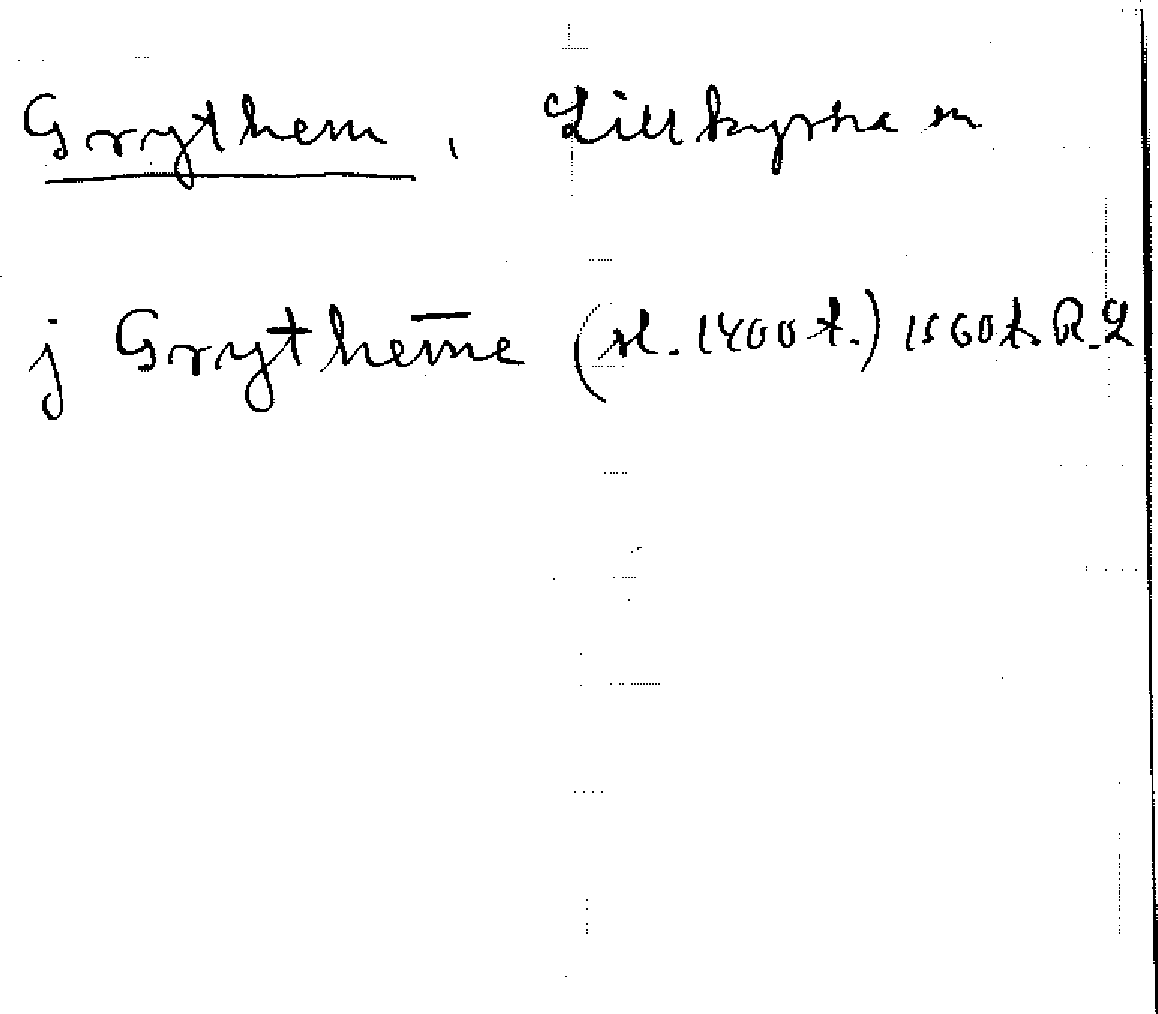 Grythem, Lillkyrka sn
j Grythem̄e (sl. 1400 t.) 1560 t. R.L